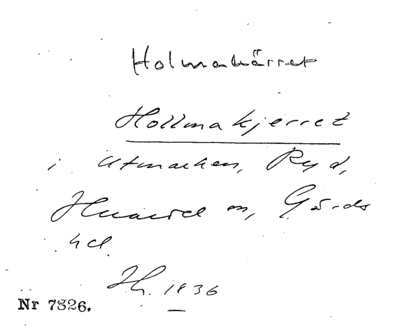 Holmakärret
Hollmakjerret
i Utmarken, Ryd,
Huaröd sn, Gärds
hd.
Hh. 1836
Nr 7826.